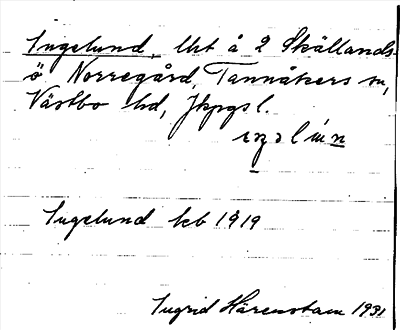 Ingelund, lht å 2 Skällands-
ö Norregård, Tannåkers sn,
Västbo hd, Jkpgs l.
Ingelund kb 1919
Ingrid Härenstam 1931